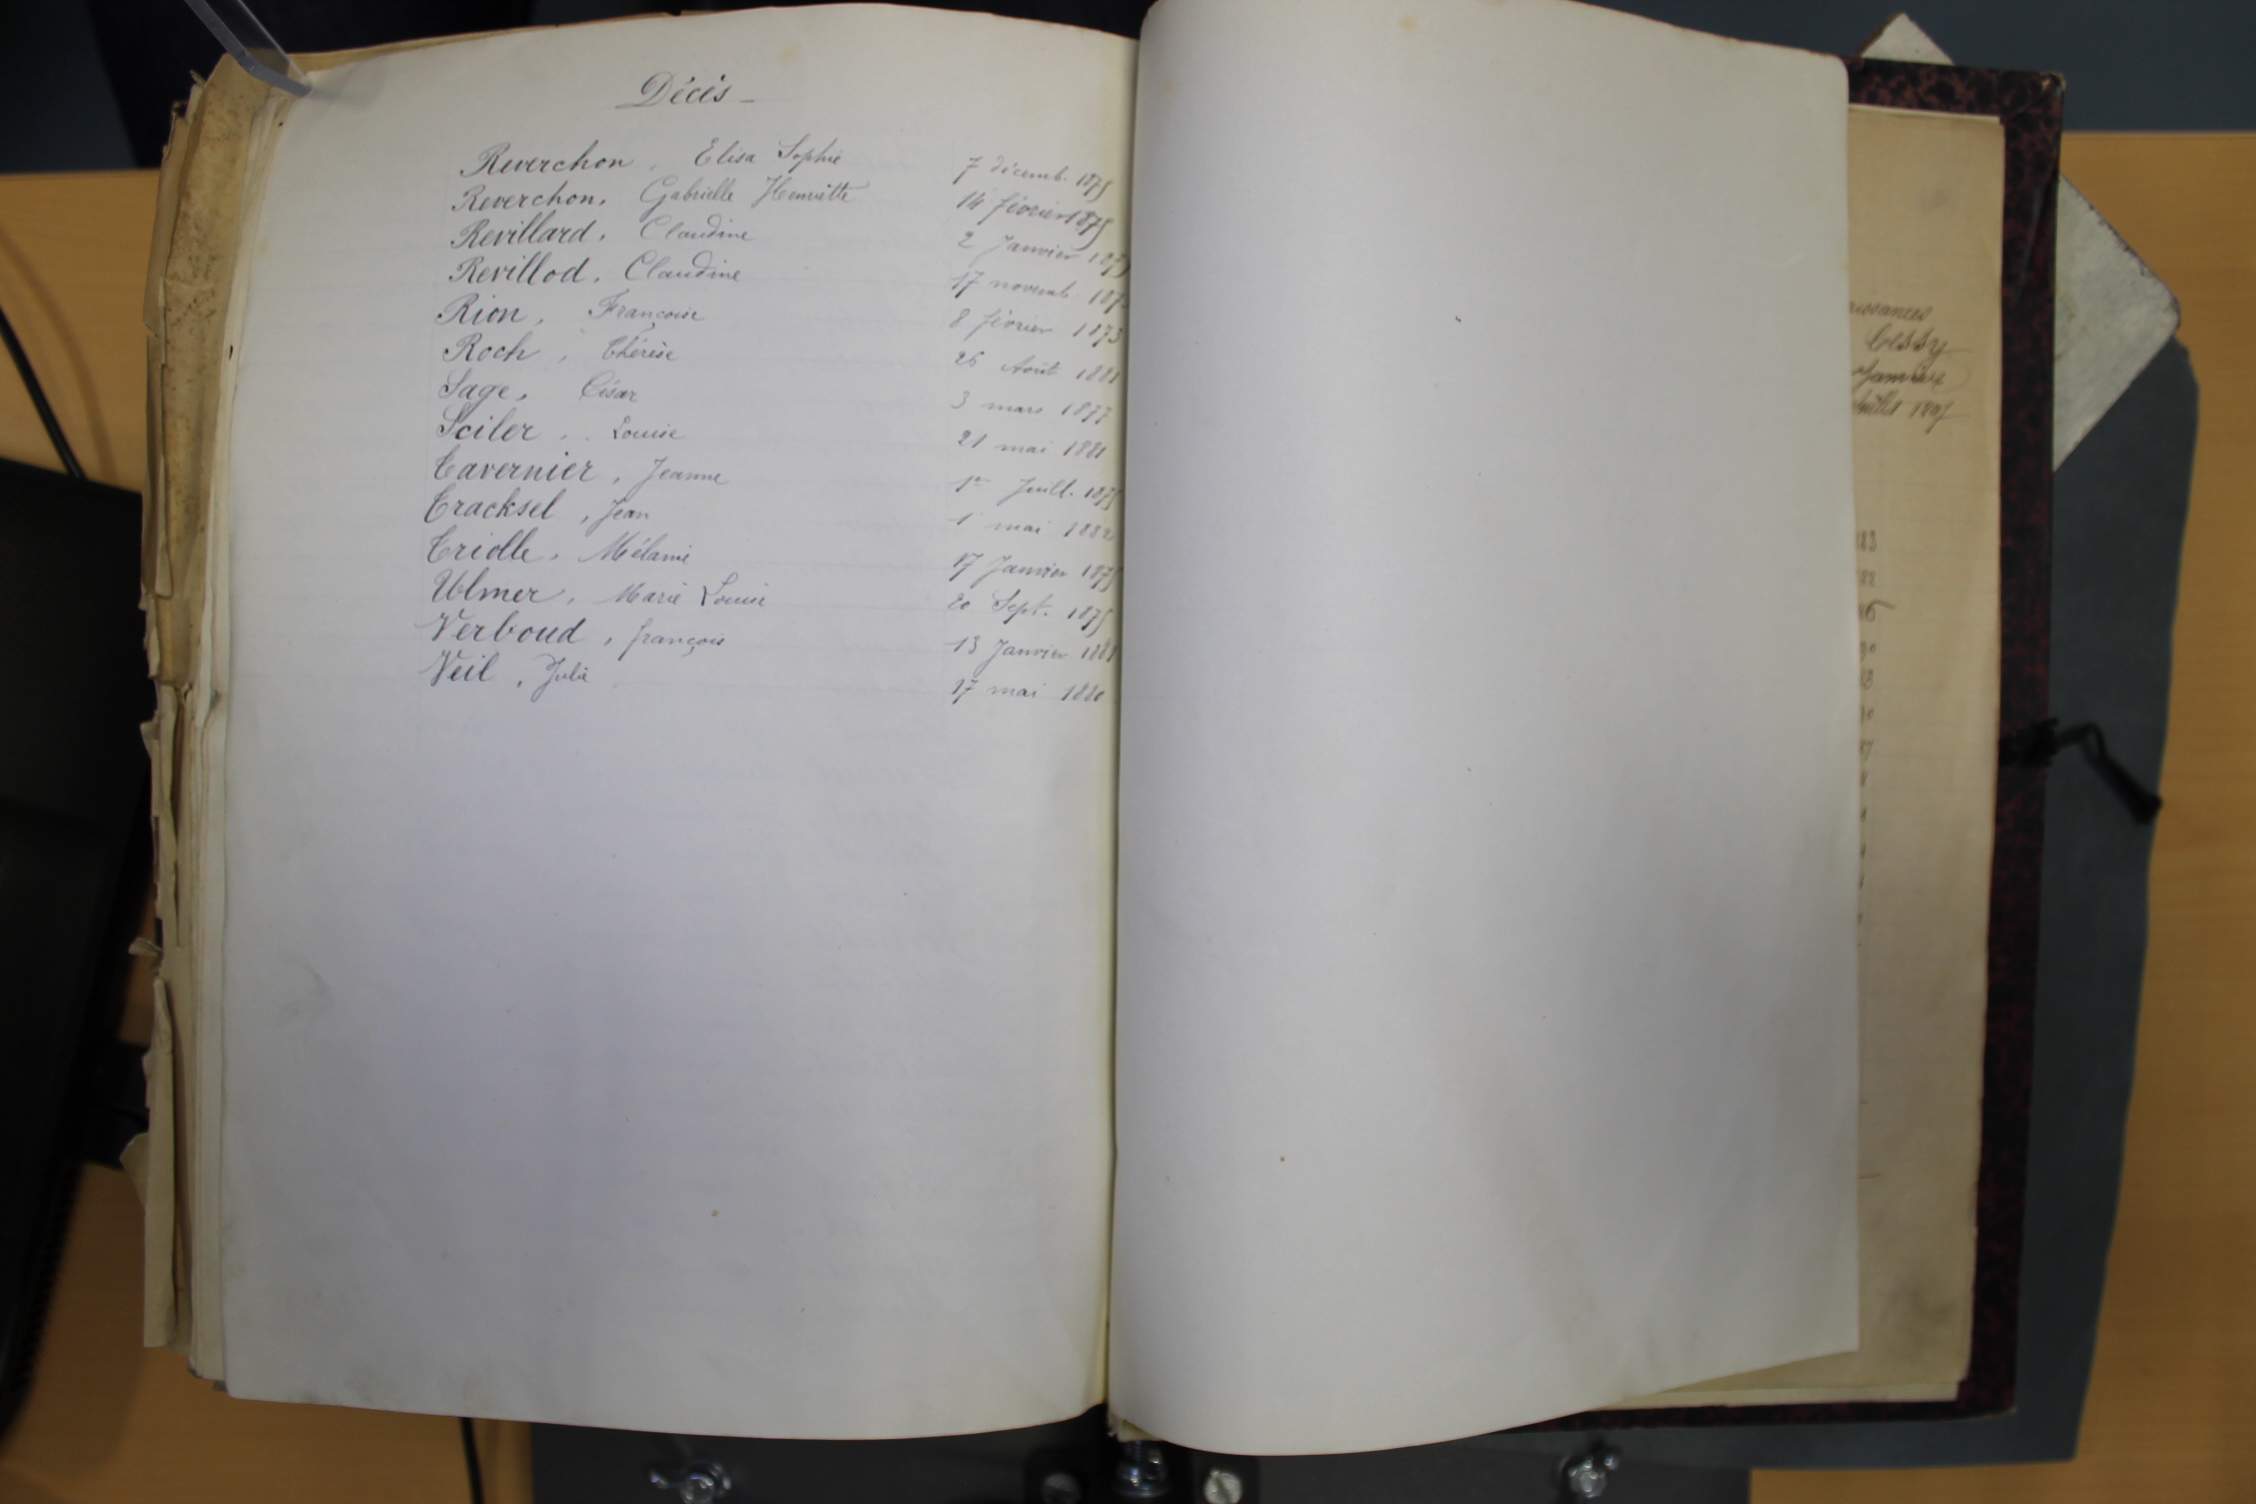 Décès
Reverchon, Elisa Sophie 7 décemb. 1875
Reverchon, Gabrielle Henriette 14 février 1875
Revillard, Claudine 2 Janvier 1875
Revillod, Claudine 17 novemb.
Rion, Françoise 8 février 1873
Roch, Thérèse 26 Août 1881
Sage, César 3 mars 1877
Sciler, Louise 21 mai 1881
Tavernier, Jeanne 1er Juill. 1875
Tracksel, Jean 1 mai 1882
Triolle, Mélanie 17 Janvier 1875
Ulmer, Marie Louise 20 Sept. 1875
Verboud, françois 13 Janvier
Veil, Julie 17 mai 1880
Cessy